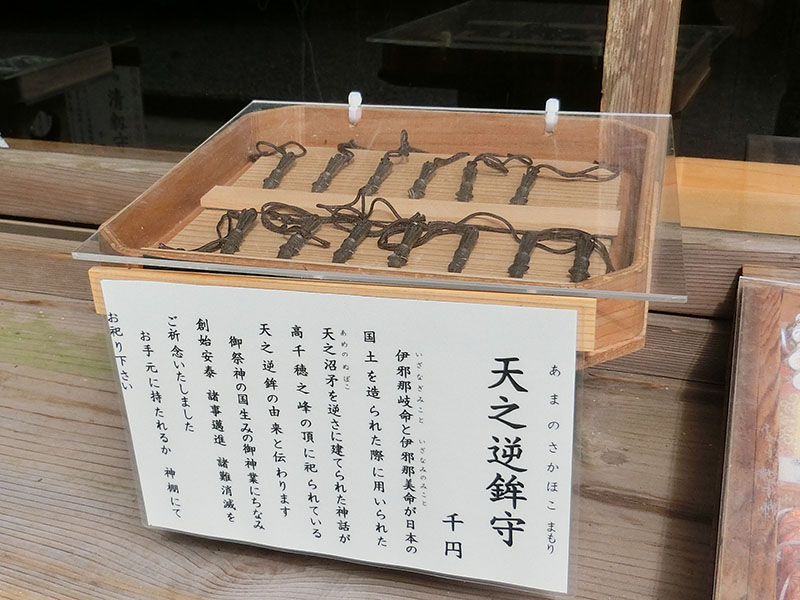 あまのさかほこまもり
天之逆鉾守
千円
いざなぎみこと いざなみのみこと
伊邪那岐命と伊邪那美命が日本の
国土を造られた際に用いられた
あめのぬぼこ
天之沼矛を逆さに建てられた神話が
高千穂之峰の頂に祀られている
天之逆鉾の由来と伝わります
御祭神の国生みの御神業にちなみ
創始安泰 諸事邁進 諸難消滅を
ご祈念いたしました
お手元に持たれるか 神棚にて
お祀り下さい